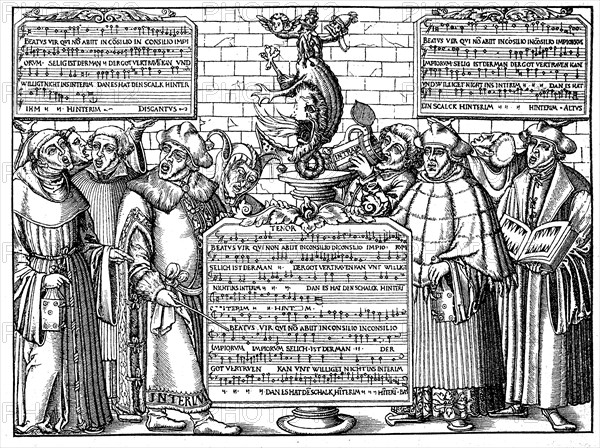 BEATUS VIR QVI NŌ ABIIT IN CŌSILIO IN CONSILIO IMPI
ORVM· SELIG IST DER MAN DER GOT VERTRŪKEN VND
WILLIGT NICHT INS INTERIM DAN ES HAT DEN SCALK HINTER
IHM HINTERIM DISCANTVS
BEATUS VIR QVI NŌ ABIIT INCOSILIO INCŌSILIO IMPIORVM
IMPIORVM SELIG IST DER MAN DER GOT VERTRVEN KAN
INTERIM DAN ES HAT DEN SCALK HINTER
EIN SCALCK HINTERIM HINTERIM ALTUS
INTERI
TENOR
BEATUS VIR QVI NON ABIIT INCONSILIO INCONSILIO IMPIO
SELICH IST DER MAN DER GOT VERTROVEN KAN VNT WILLIG
NICHT INS INTERIM DAN ES HAT DEN SCHALCK HINTERI
INTERIM HINTERIM
BEATUS VIR QVI NŌ ABIIT INCONSILIO INCONSILIO
IMPIORVM IMPIORVM SELICH IST DER MAN DER
GOT VERTRVEN KAN VNT WILLIGET NICHT INS INTERIM
DAN ES HAT DĒ SCHALCK HITERIM HITERI
INTERIM